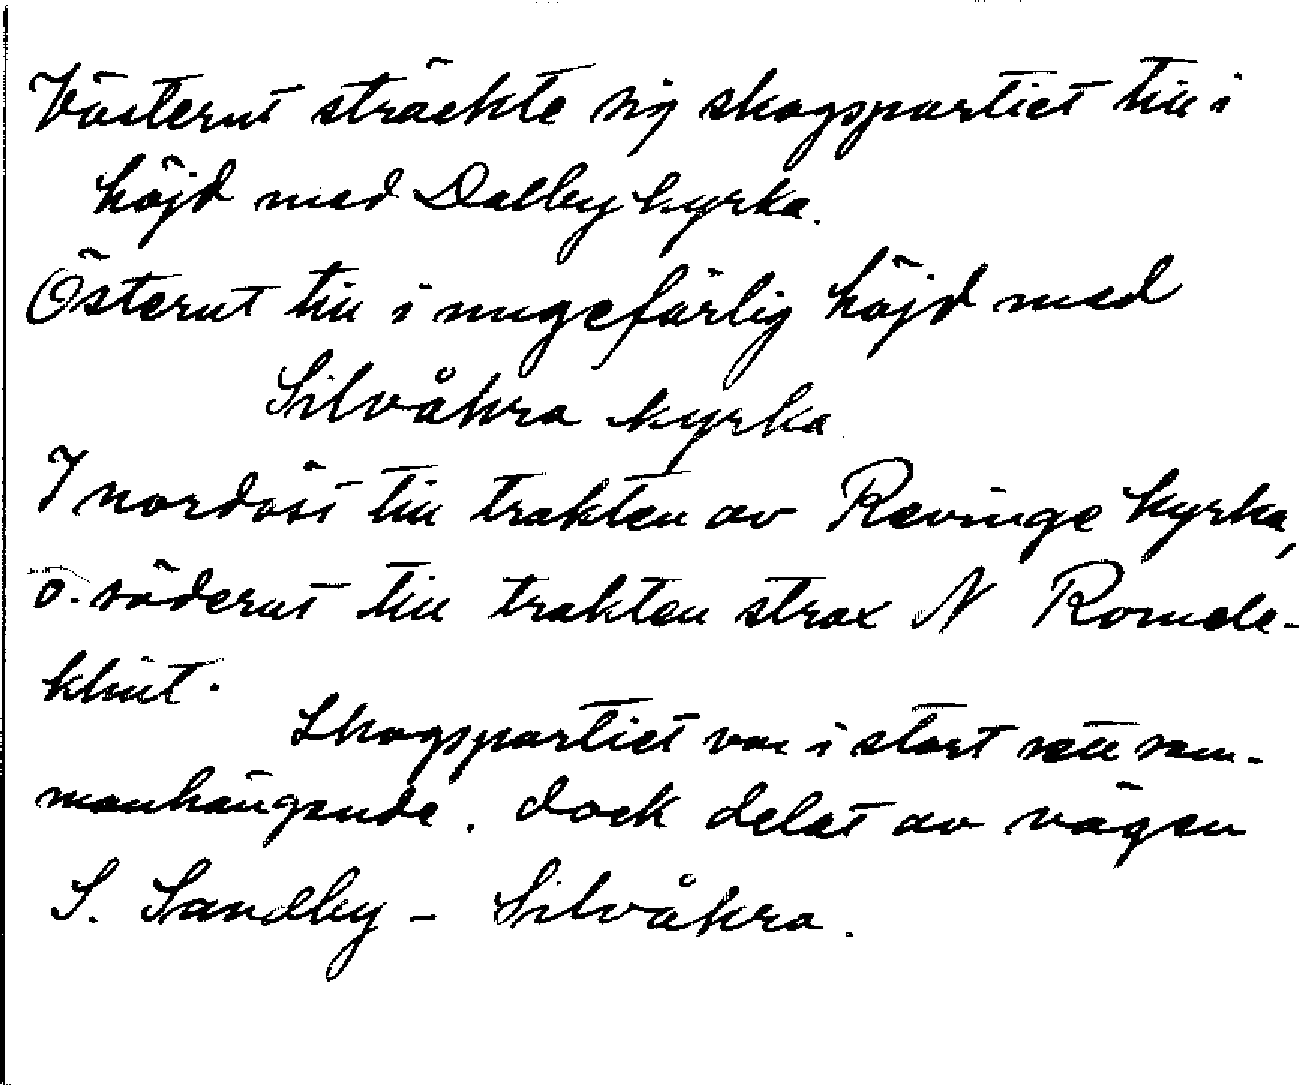 Västerut sträckte sig skogspartiet till i
höjd med Dalby kyrka.
Österut till i ungefärlig höjd med
Silvåkra kyrka.
I nordöst till trakten av Revinge kyrka,
o. söderut till trakten strax N Romele-
klint.
Skogspartiet var i stort sett sam-
manhängande. dock delat av vägen
S. Sandby - Silvåkra.